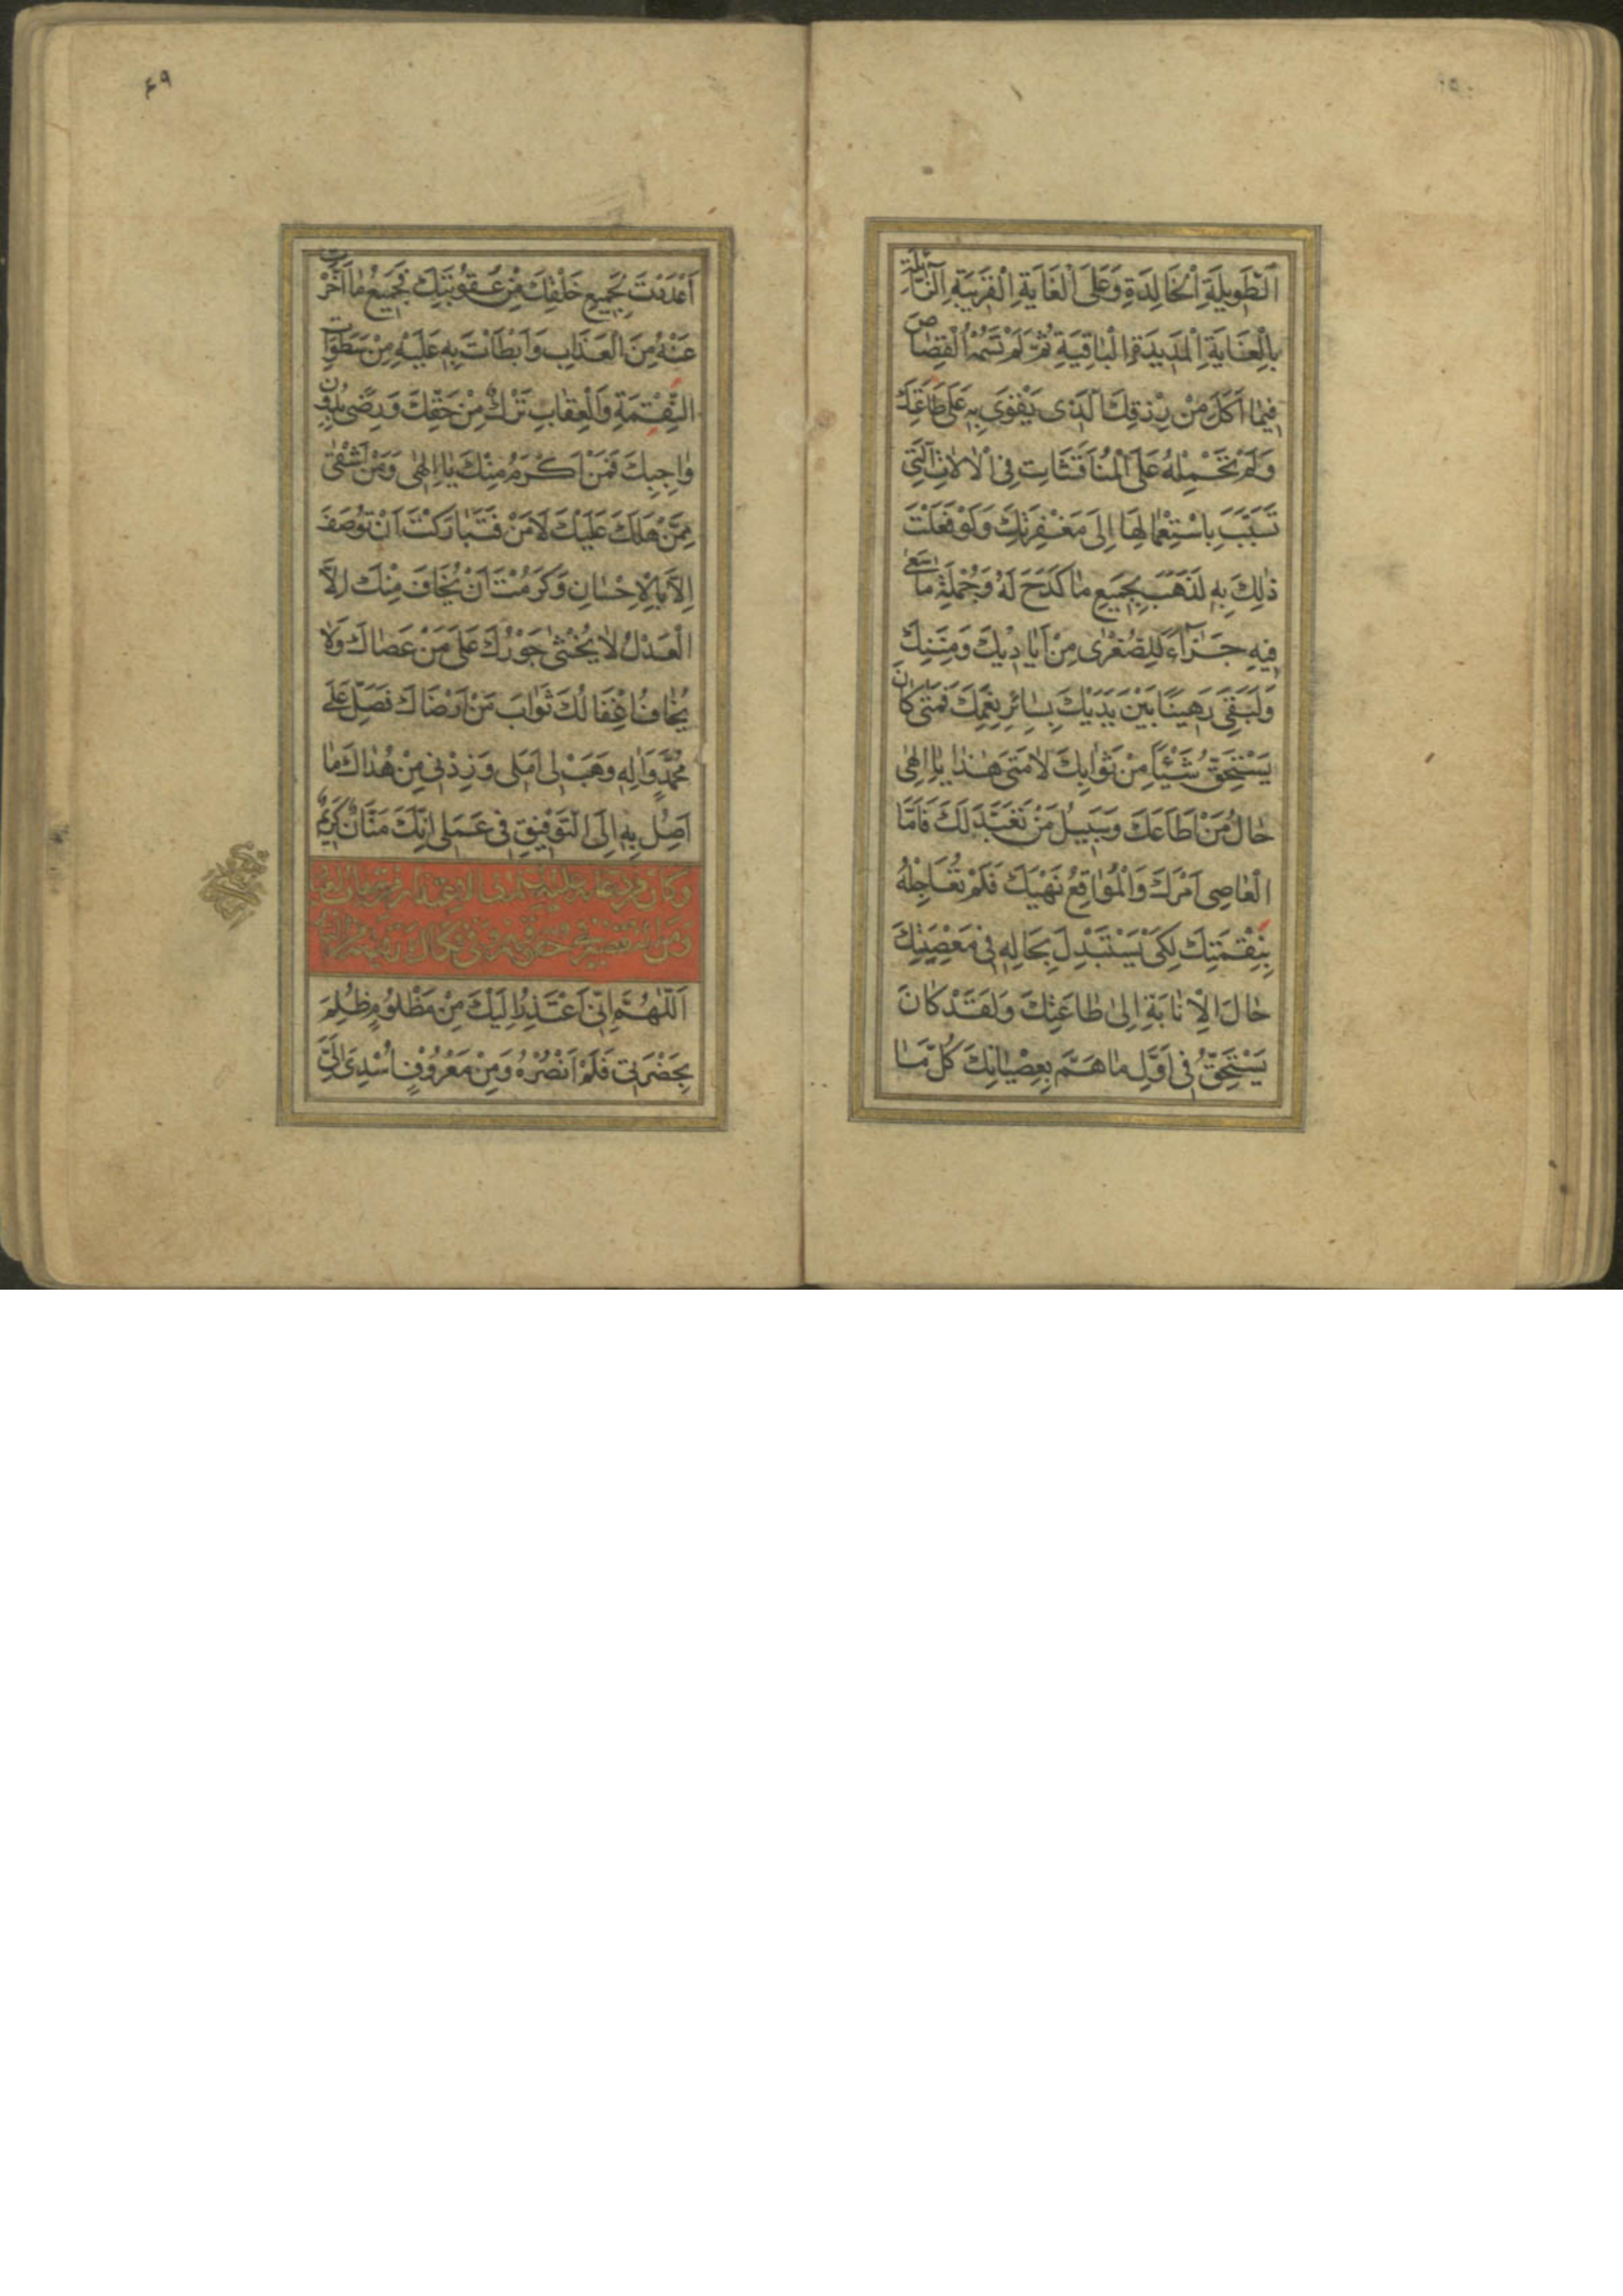 اَلطَّوِيلَةِ الْخَالِدَةِ وَعَلَى الْغَايَةِ الْقَرِيبَةِ الزَّائِلَةِ
بِالْغَايَةِ الْمَدِيدَةِ الْبَاقِيَةِ ثُمَّ لَمْ تَسُمْهُ الْقِصَاصَ
فِيمَا اَكَلَ مِنْ رِزْقِكَ الَّذِى يَقْوَى بِهِ عَلَى طَاعَتِكَ
وَلَمْ تَحْمِلْهُ عَلَى الْمُنَاقَشَاتِ فِى الْاٰلاتِ الَّتِى
تَسَبَّبَ بِاسْتِعْمَالِهَا اِلَى مَغْفِرَتِكَ وَلَوْ فَعَلْتَ
ذٰلِكَ بِهِ لَذَهَبَ بِجَمِيعِ مَا كَدَحَ لَهُ وَجُمْلَةِ مَا سَعٰى
فِيهِ جَزَآءً لِلصُّغْرٰى مِنْ اَيَادِيكَ وَمِنَنِكَ
وَلَبَقِىَ رَهِينًا بَيْنَ يَدَيْكَ بِسَائِرِ نِعَمِكَ فَمَتٰى كَانَ
يَسْتَحِقُّ شَيْئًا مِنْ ثَوَابِكَ لَا مَتٰى هٰذَا يَا اِلٰهِى
حَالُ مَنْ اَطَاعَكَ وَسَبِيلُ مَنْ تَعَبَّدَ لَكَ فَاَمَّا
الْعَاصِى اَمْرَكَ وَالْمُوَاقِعُ نَهْيَكَ فَلَمْ تُعَاجِلْهُ
بِنِقْمَتِكَ لِكَىْ يَسْتَبْدِلَ بِحَالِهِ فِى مَعْصِيَتِكَ
حَالَ الْاِنَابَةِ اِلىٰ طَاعَتِكَ وَلَقَدْ كَانَ
يَسْتَحِقُّ فِى اَوَّلِ مَا هَمَّ بِعِصْيَانِكَ كُلَّ مَا
۶۹
اَعْدَدْتَ لِجَمِيعِ خَلْقِكَ مِنْ عُقُوبَتِكَ فَجَمِيعُ مَا اَخَّرْتَ
عَنْهُ مِنَ الْعَذَابِ وَاَبْطَاْتَ بِهِ عَلَيْهِ مِنْ سَطَوَاتِ
النِّقْمَةِ وَالْعِقَابِ تَرْكٌ مِنْ حَقِّكَ وَرِضًى بِدُونِ
وَاجِبِكَ فَمَنْ اَكْرَمُ مِنْكَ يَا اِلٰهِى وَمَنْ اَشْقٰى
مِمَّنْ هَلَكَ عَلَيْكَ لَا مَنْ فَتَبَارَكْتَ اَنْ تُوصَفَ
اِلَّا بِالْاِحْسَانِ وَكَرُمْتَ اَنْ يُخَافَ مِنْكَ اِلَّا
الْعَدْلُ لَا يُخْشٰى جَوْرُكَ عَلٰى مَنْ عَصَاكَ وَلَا
يُخَافُ اِغْفَالُكَ ثَوَابَ مَنْ اَرْضَاكَ فَصَلِّ عَلٰى
مُحَمَّدٍ وَاٰلِهِ وَهَبْ لِى اَمَلِى وَزِدْنِى مِنْ هُدَاكَ مَا
اَصِلُ بِهِ اِلَى التَّوْفِيقِ فِى عَمَلِى اِنَّكَ مَنَّانٌ كَرِيمٌ
وكان من دعائه عليه السلام فى الاعتذار من تبعات العباد
ومن التقصير فى حقوقهم وفى فكاك رقبته من النار
اَللّٰهُمَّ اِنِّى اَعْتَذِرُ اِلَيْكَ مِنْ مَظْلُومٍ ظُلِمَ
بِحَضْرَتِى فَلَمْ اَنْصُرْهُ وَمِنْ مَعْرُوفٍ اُسْدِىَ اِلَىَّ